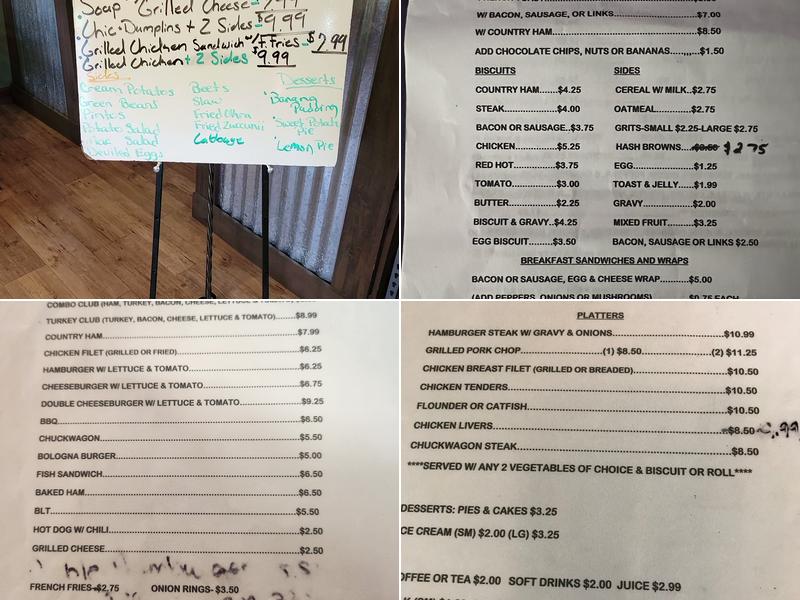 Soap Grilled Cheese
Chic. Dumplins + 2 Sides $9.99
Grilled Chicken Sandwich w/ F. Fries - $7.99
Grilled Chicken + 2 Sides $9.99
Sides
Cream Potatoes
Green Beans
Pintos
Potato Salad
Salad
Deviled Eggs
Beets
Slaw
Fried Okra
Fried Zuccunii
Cabbage
Desserts
Banana Pudding
Sweet Potato Pie
Lemon Pie
W/ BACON, SAUSAGE, OR LINKS $7.00
W/ COUNTRY HAM $8.50
ADD CHOCOLATE CHIPS, NUTS OR BANANAS $1.50
BISCUITS
COUNTRY HAM.......$4.25
STEAK...............$4.00
BACON OR SAUSAGE..$3.75
CHICKEN.............$5.25
RED HOT.............$3.75
TOMATO..............$3.00
BUTTER..............$2.25
BISCUIT & GRAVY..$4.25
EGG BISCUIT.........$3.50
SIDES
CEREAL W/ MILK..$2.75
OATMEAL.............$2.75
GRITS-SMALL $2.25-LARGE $2.75
HASH BROWNS $2.75
EGG...................$1.25
TOAST & JELLY.....$1.99
GRAVY...............$2.00
MIXED FRUIT........$3.25
BACON, SAUSAGE OR LINKS $2.50
BREAKFAST SANDWICHES AND WRAPS
BACON OR SAUSAGE, EGG & CHEESE WRAP.....$5.00
(ADD PEPPERS, ONIONS OR MUSHROOMS) $0.75 EACH
COMBO CLUB (HAM, TURKEY, BACON, CHEESE, LETTUCE & TOMATO)
TURKEY CLUB (TURKEY, BACON, CHEESE, LETTUCE & TOMATO)......$8.99
COUNTRY HAM......$7.99
CHICKEN FILET (GRILLED OR FRIED)......$6.25
HAMBURGER W/ LETTUCE & TOMATO......$6.25
CHEESEBURGER W/ LETTUCE & TOMATO......$6.75
DOUBLE CHEESEBURGER W/ LETTUCE & TOMATO......$9.25
BBQ......$6.50
CHUCKWAGON......$5.50
BOLOGNA BURGER......$5.00
FISH SANDWICH......$6.50
BAKED HAM......$6.50
BLT......$5.50
HOT DOG W/ CHILI......$2.50
GRILLED CHEESE......$2.50
FRENCH FRIES-$2.75 ONION RINGS- $3.50
PLATTERS
HAMBURGER STEAK W/ GRAVY & ONIONS......$10.99
GRILLED PORK CHOP......(1) $8.50......(2) $11.25
CHICKEN BREAST FILET (GRILLED OR BREADED)......$10.50
CHICKEN TENDERS......$10.50
FLOUNDER OR CATFISH......$10.50
CHICKEN LIVERS......$8.50
CHUCKWAGON STEAK......$8.50
****SERVED WITH ANY 2 VEGETABLES OF CHOICE & BISCUIT OR ROLL****
DESSERTS: PIES & CAKES $3.25
CE CREAM (SM) $2.00 (LG) $3.25
OFFEE OR TEA $2.00 SOFT DRINKS $2.00 JUICE $2.99